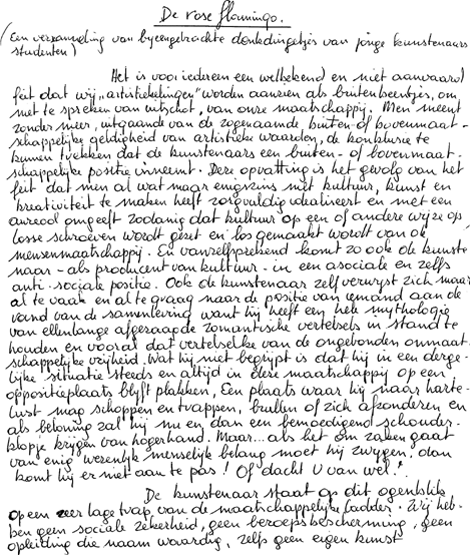 De rose flamingo.
(Een verzameling van byeengebrachte denkdingetjes van jonge kunstenaars
studenten)
Het is voor iedereen een welbekend en niet aanvaard
feit dat wij "artistiekelingen" worden aanzien als buitenbeentjes, om
niet te spreken van uitschot, van onze maatschappij. Men meent
zonder meer, uitgaande van de zogenaamde buiten- of bovenmaat-
schappelijke geldigheid van artistieke waarden, de konklusie te
kunnen trekken dat de kunstenaars een buiten- of bovenmaat.
schappelijke positie inneemt. Deze opvatting is het gevolg van het
feit dat men al wat maar enigszins met kultuur, kunst en
kreativiteit te maken heeft zorgvuldig idealiseert en met een
aureool omgeeft zodanig dat kultuur op een of andere wijze op
losse schroeven wordt gezet en los gemaakt wordt van de
mensenmaatschappij. En vanzelfsprekend komt zo ook de kunste
naar - als producent van kultuur - in een asociale en zelfs
anti-sociale positie. Ook de kunstenaar zelf verwyst zich maar
al te vaak en al te graag naar de positie van iemand aan de
rand van de samenleving want hij heeft een hele mythologie
van ellenlange afgezaagde romantische vertelsels in stand te
houden en vooral dat vertelselke van de ongebonden onmaat
schappelyke vrijheid. Wat hij niet begrijpt is dat hij in een derge-
lijke situatie steeds en altijd in deze maatschappij op een
oppositieplaats blyft plakken, Een plaats waar hij naar harte-
lust mag schoppen en trappen, brullen of zich afzonderen en
als beloning zal hij nu en dan een bemoedigend schouder-
klopje krijgen van hogerhand. Maar... als het om zaken gaat
van enig wezenlyk menselyk belang moet hij zwygen, dan
komt hij er niet aan te pas! Of dacht U van wel!
De kunstenaar staat op dit ogenblik
op een zeer lage trap van de maatschappelijke ladder. Wij heb-
ben geen sociale zekerheid, geen beroepsbescherming, geen
opleiding die naam waardig, zelfs geen eigen kunst